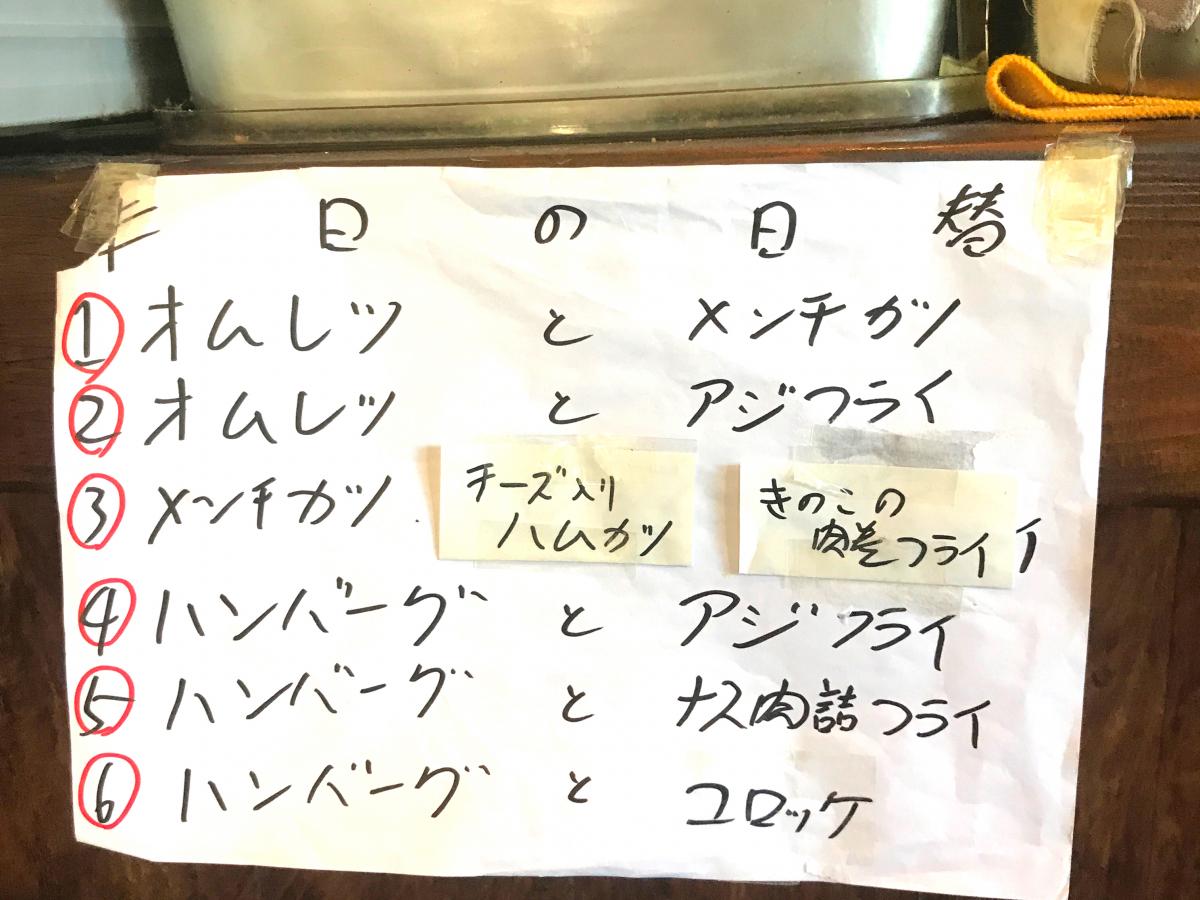 日の日替
① オムレツ と メンチカツ
② オムレツ と アジフライ
③ メンチカツ チーズ入り ハムカツ きのこの 肉巻フライイ
④ ハンバーグ と アジフライ
⑤ ハンバーグ と ナス肉詰フライ
⑥ ハンバーグ と コロッケ